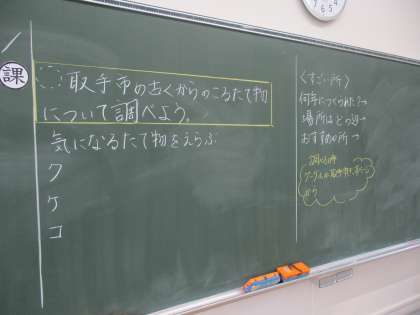 課
取手市の古くからのこるたて物
について調べよう。
気になるたて物をえらぶ
ク
ケ
コ
〈すごい所〉
何年につくられた?→
場所はどの辺→
おすすめの所→
から